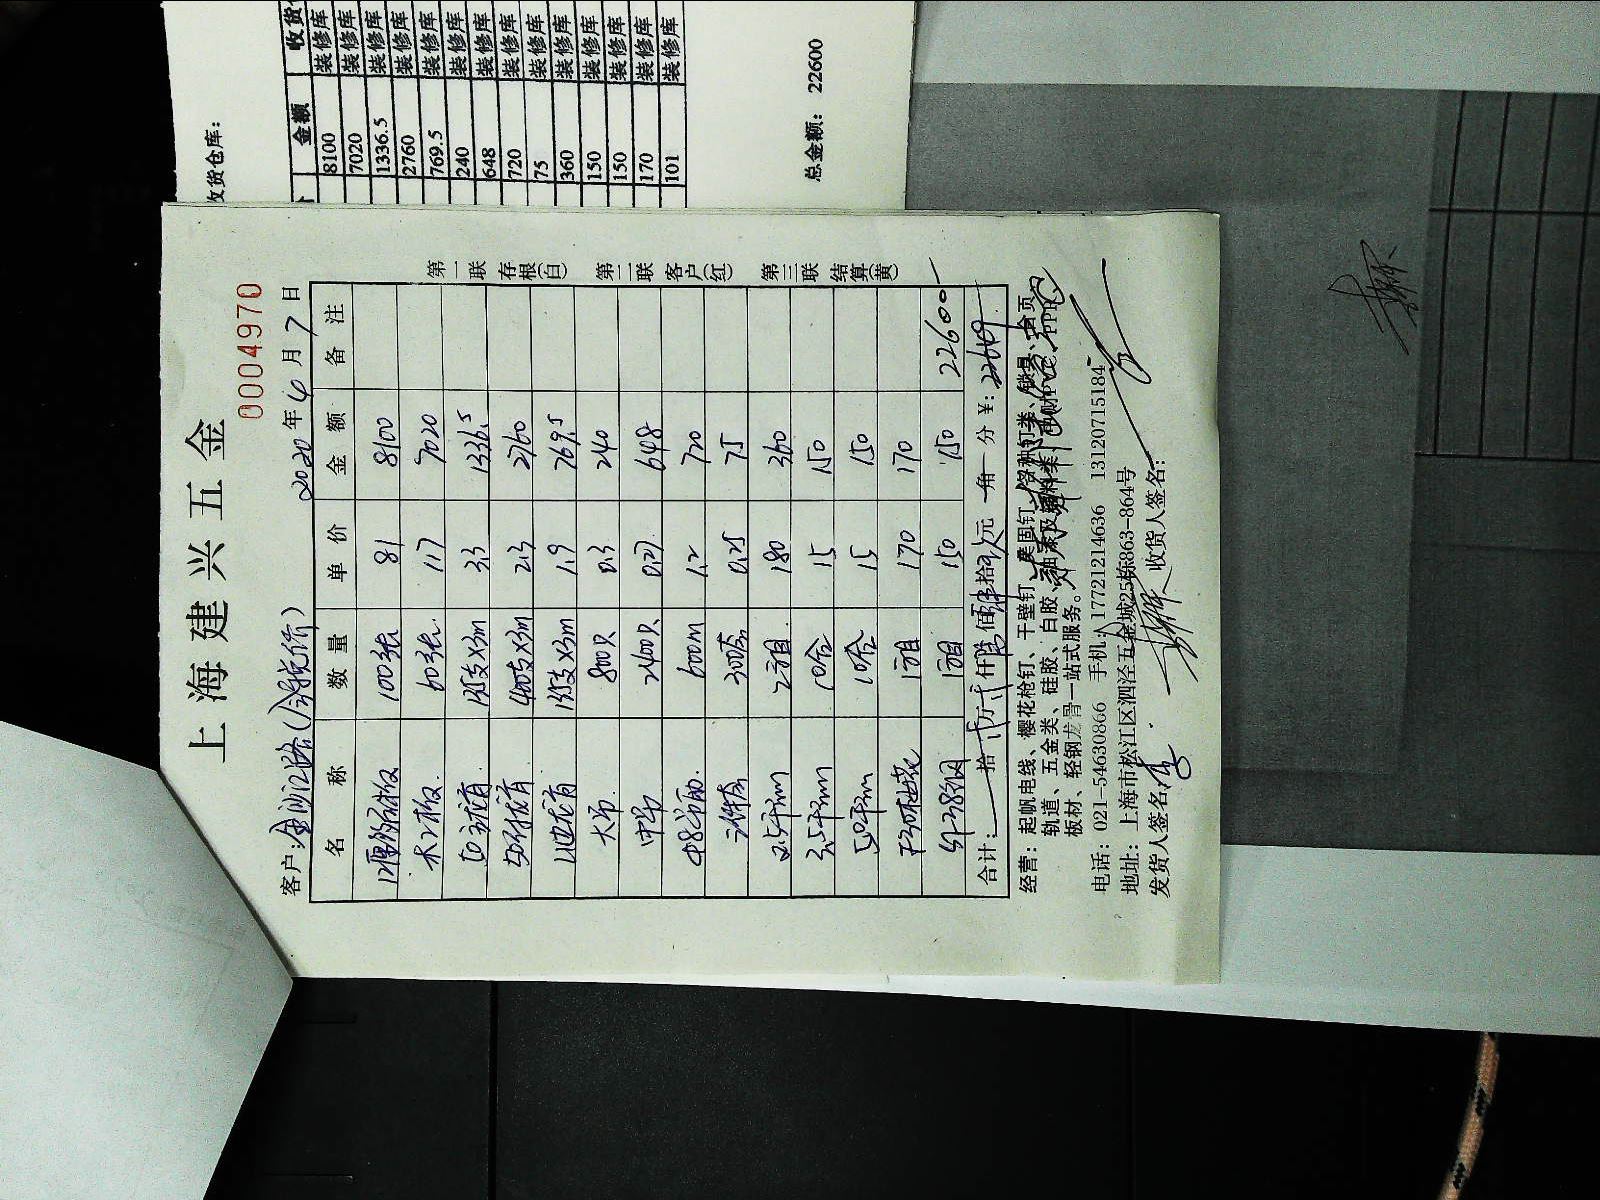 收货仓库：
金额 收货
8100 装修库
7020 装修库
1336.5 装修库
2760 装修库
769.5 装修库
240 装修库
648 装修库
720 装修库
75 装修库
360 装修库
150 装修库
150 装修库
170 装修库
101 装修库
总金额： 22600
上海建兴五金
0004970
客户: 金沙江路(含税价) 2020年4月7日
名 称 数 量 单 价 金 额 备 注
100张 81 8100
60张 117 7020
135支×3m 3.3 1336.5
400支×3m 2.3 2760
135支×3m 1.9 769.5
大吊 800只 0.3 240
中吊 2400只 0.27 648
600m 1.2 720
300套 0.25 75
2箱 180 360
10盒 15 150
10盒 15 150
1箱 170 170
1箱 150 150 22600
合计: 拾 万 仟 佰 拾 元 角 分 ¥: 22649
第一联 存根(白) 第二联 客户(红) 第三联 结算(黄)
经营：起帆电线、樱花枪钉、干壁钉、美固钉、各种钉类、锁具、合页
轨道、五金类、硅胶、白胶、油漆及辅料类、
板材、轻钢龙骨一站式服务。
电话：021-54630866 手机：17721214636 13120715184
地址：上海市松江区泗泾五金城25栋863-864号
发货人签名: 收货人签名: